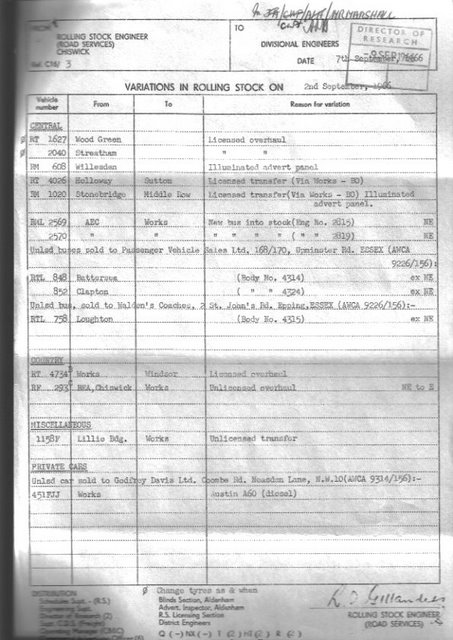 To
FROM
ROLLING STOCK ENGINEER
(ROAD SERVICES)
CHISWICK
Ref. C16/ 3
TO
DIVISIONAL ENGINEERS
DATE 7th September, 1966
DIRECTOR OF
RESEARCH
VARIATIONS IN ROLLING STOCK ON 2nd September, 1966
Vehicle number From To Reason for variation
CENTRAL
Ø RT 1627 Wood Green Licensed overhaul
Ø 2040 Streatham " "
RM 608 Willesden Illuminated advert panel
RT 4026 Holloway Sutton Licensed transfer (Via Works - BO)
RM 1020 Stonebridge Middle Row Licensed transfer(Via Works - BO) Illuminated
advert panel.
RML 2569 AEC Works New bus into stock(Eng No. 2815) NE
2570 " " " " " " ( " " 2819) NE
Unlsd buses sold to Passenger Vehicle Sales Ltd, 168/170, Upminster Rd. ESSEX (AWCA
9226/156):-
RTL 848 Battersea (Body No. 4314) ex NE
852 Clapton ( " " 4324) ex NE
Unlsd bus, sold to Walden's Coaches, 2 St. John's Rd. Epping,ESSEX (AWCA 9226/156):-
RTL 758 Loughton (Body No. 4315) ex NE
COUNTRY
RT 4734 Works Windsor Licensed overhaul
RF 293 BEA,Chiswick Works Unlicensed overhaul NE to E
MISCELLANEOUS
1158F Lillie Bdg. Works Unlicensed transfer
PRIVATE CARS
Unlsd car sold to Godfrey Davis Ltd. Coombe Rd. Neasden Lane, N.W.10(AWCA 9314/156):-
451FJJ Works Austin A60 (diesel)
DISTRIBUTION
Ø Change tyres as & when
Schedules Supt. (R.S.)
Engineering Supt.
Director of Research (2)
Blinds Section, Aldenham
Advert. Inspector, Aldenham
R.S. Licensing Section
District Engineers
ROLLING STOCK ENGINEER
(ROAD SERVICES)